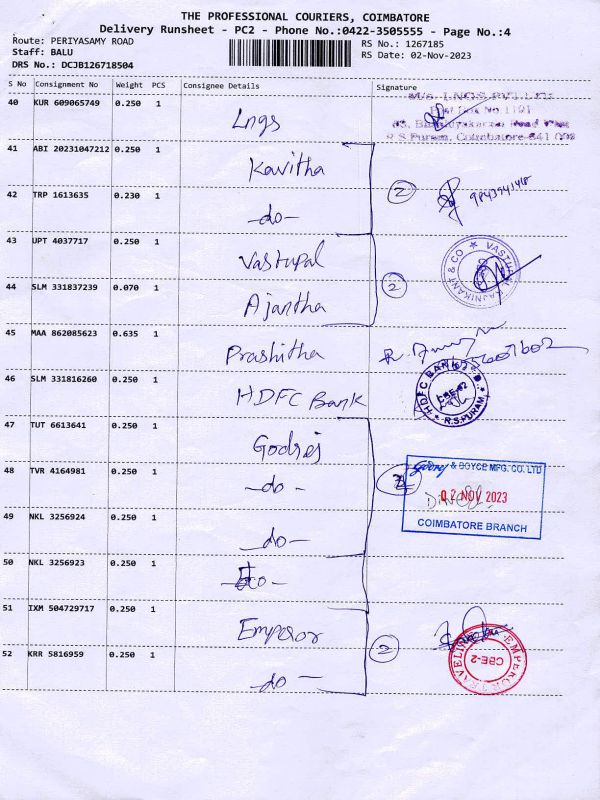 THE PROFESSIONAL COURIERS, COIMBATORE
Delivery Runsheet - PC2 - Phone No.:0422-3505555 - Page No.:4
Route: PERIYASAMY ROAD
Staff: BALU
DRS No.: DCJB126718504
RS No.: 1267185
RS Date: 02-Nov-2023
S No Consignment No Weight PCS Consignee Details Signature
40 KUR 609065749 0.250 1 Lngs
M/s. LNGS PVT LTD
R.S.Puram, Coimbatore-641 002
41 ABI 20231047212 0.250 1 Kavitha
2
42 TRP 1613635 0.230 1 -do-
43 UPT 4037717 0.250 1 Vastupal
VASTUPAL RAJNIKANT & CO
44 SLM 331837239 0.070 1 Ajantha
2
45 MAA 862085623 0.635 1 Prashitha
46 SLM 331816260 0.250 1 HDFC Bank
HDFC BANK LTD. CBE-02 R.S.PURAM
47 TUT 6613641 0.250 1 Godrej
48 TVR 4164981 0.250 1 -do-
Godrej & BOYCE MFG. CO. LTD
02 NOV 2023
COIMBATORE BRANCH
49 NKL 3256924 0.250 1 -do-
50 NKL 3256923 0.250 1 -do-
51 IXM 504729717 0.250 1 Emperor
2
EMPEROR TRAVELINE CBE-2
52 KRR 5816959 0.250 1 -do-